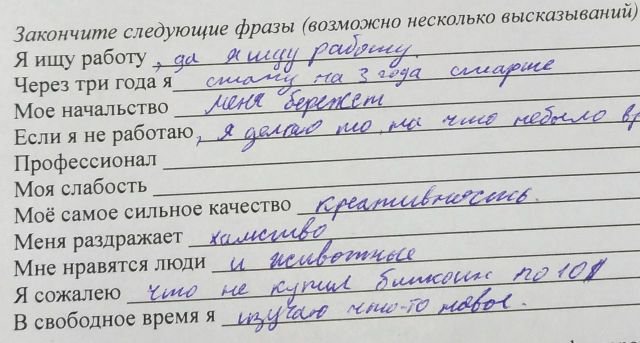 Закончите следующие фразы (возможно несколько высказываний)
Я ищу работу, да я ищу работу.
Через три года я стану на 3 года старше
Мое начальство меня бережет
Если я не работаю, я делаю то, на что небыло вр
Профессионал
Моя слабость
Моё самое сильное качество креативность.
Меня раздражает хамство
Мне нравятся люди и животные
Я сожалею что не купил биткоин по 10$
В свободное время я изучаю что-то новое.